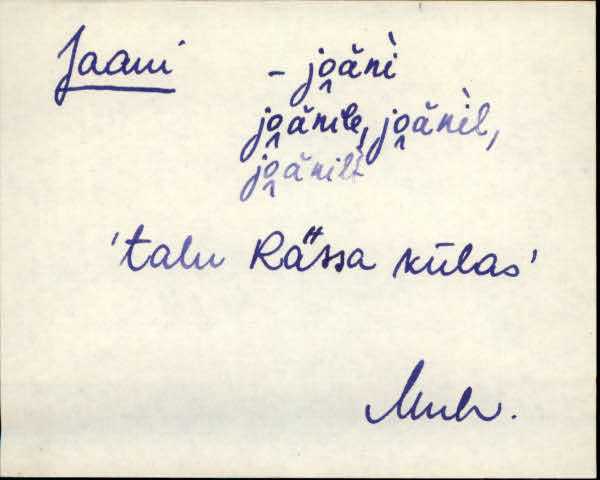 Jaani - jo̭ănì
jo̭ănile, jo̭ănìl,
jo̭ănilt
'talu Rässa külas'
Muh.